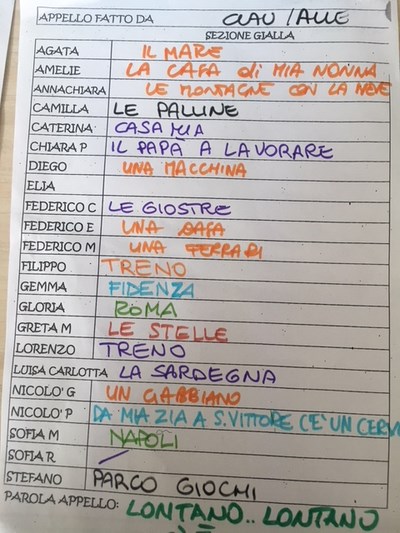 APPELLO FATTO DA CLAU / ALLE
SEZIONE GIALLA
AGATA IL MARE
AMELIE LA CASA di MIA NONNA
ANNACHIARA LE MONTAGNE CON LA NEVE
CAMILLA LE PALLINE
CATERINA CASA MIA
CHIARA P IL PAPÀ A LAVORARE
DIEGO UNA MACCHINA
ELIA
FEDERICO C LE GIOSTRE
FEDERICO E UNA CASA
FEDERICO M UNA FERRARI
FILIPPO TRENO
GEMMA FIDENZA
GLORIA ROMA
GRETA M LE STELLE
LORENZO TRENO
LUISA CARLOTTA LA SARDEGNA
NICOLO' G UN GABBIANO
NICOLO' P DA MIA ZIA A S. VITTORE C'È UN CERV
SOFIA M NAPOLI
SOFIA R.
STEFANO PARCO GIOCHI
PAROLA APPELLO: LONTANO.. LONTANO